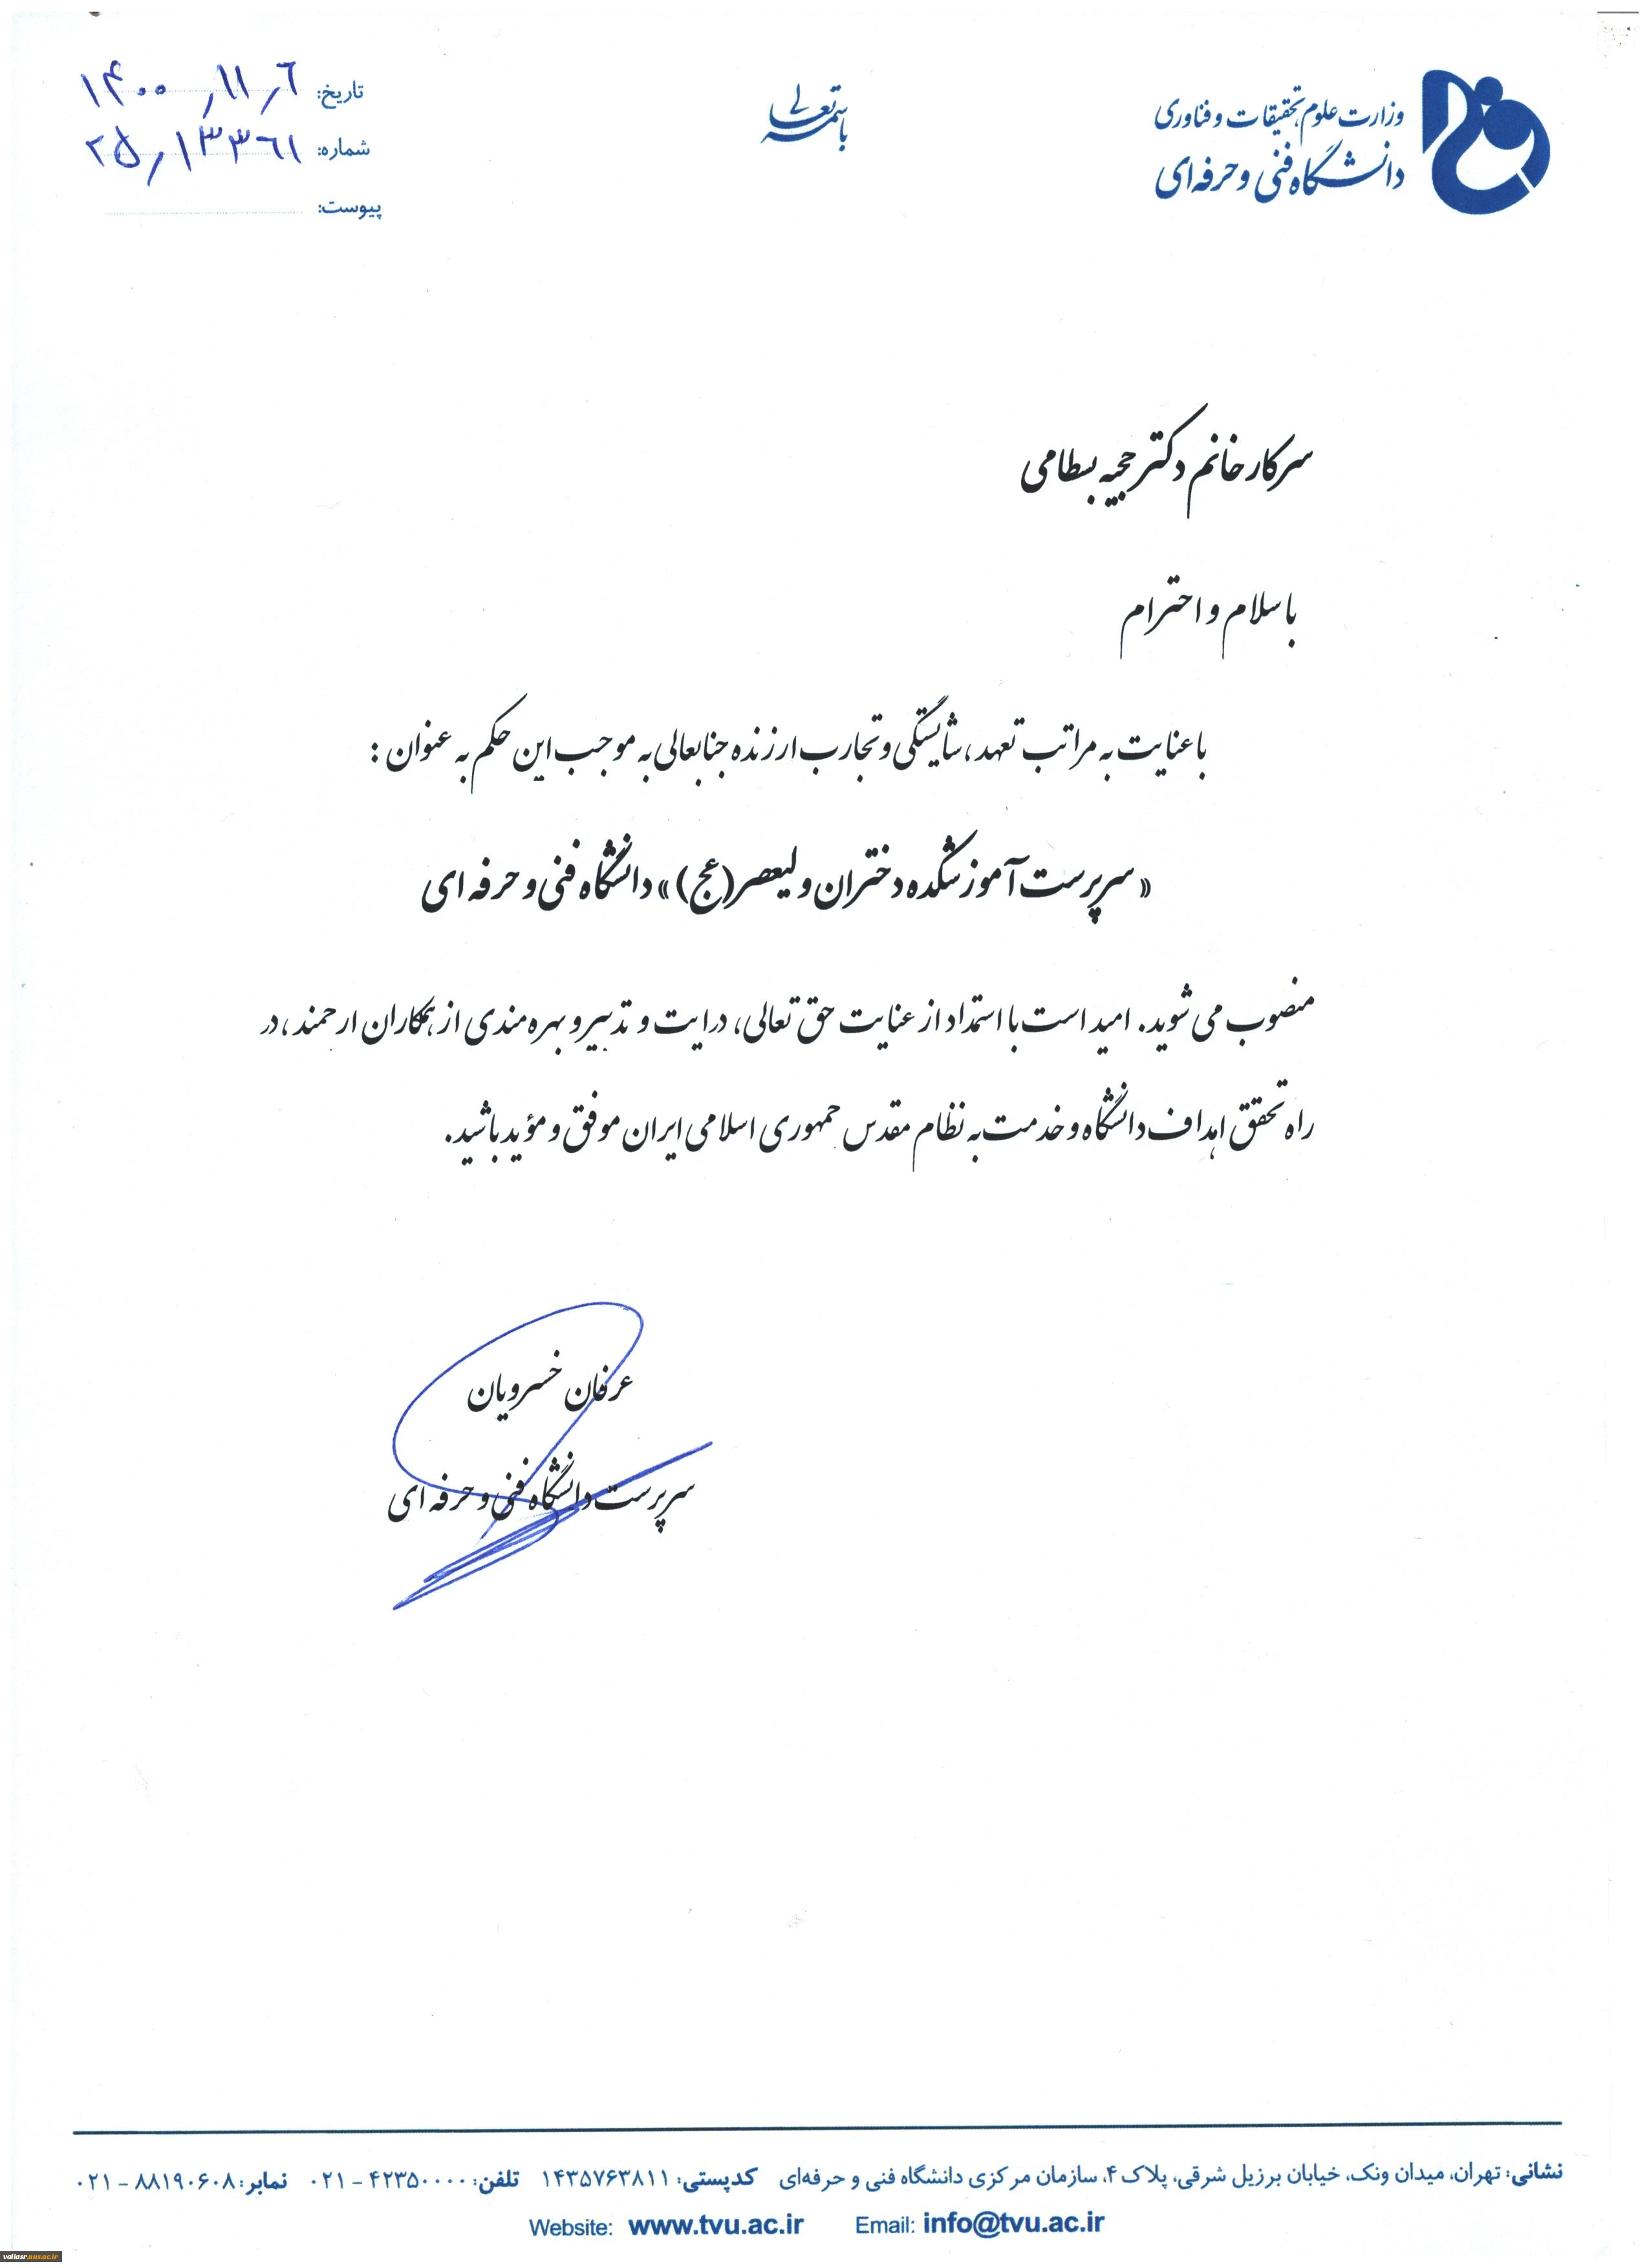 وزارت علوم، تحقیقات و فناوری
دانشگاه فنی و حرفه‌ای
باسمه تعالی
تاریخ: ۱۴۰۰/۱۱/۶
شماره: ۲۵/۱۳۳۶۱
پیوست:
سرکار خانم دکتر حجیه بسطامی
با سلام و احترام
با عنایت به مراتب تعهد، شایستگی و تجارب ارزنده جنابعالی به موجب این حکم به عنوان :
« سرپرست آموزشکده دختران ولیعصر (عج) » دانشگاه فنی و حرفه ای
منصوب می شوید. امید است با استمداد از عنایت حق تعالی، درایت و تدبیر و بهره مندی از همکاران ارجمند، در
راه تحقق اهداف دانشگاه و خدمت به نظام مقدس جمهوری اسلامی ایران موفق و مؤید باشید.
عرفان خسرویان
سرپرست دانشگاه فنی و حرفه ای
نشانی: تهران، میدان ونک، خیابان برزیل شرقی، پلاک ۴، سازمان مرکزی دانشگاه فنی و حرفه‌ای کدپستی: ۱۴۳۵۷۶۳۸۱۱ تلفن: ۴۲۳۵۰۰۰۰ - ۰۲۱ نمابر: ۸۸۱۹۰۶۰۸ - ۰۲۱
Website: www.tvu.ac.ir Email: info@tvu.ac.ir
valiasr.nus.ac.ir